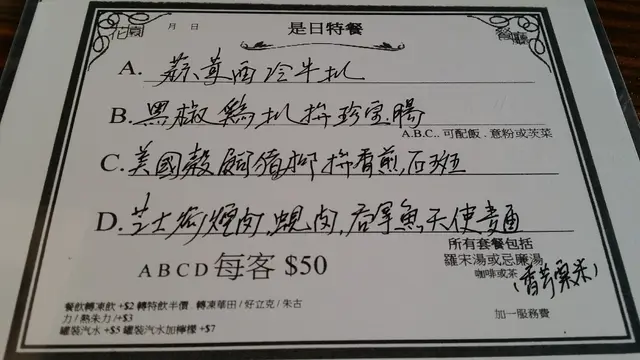 花園 月 日 是日特餐 餐廳
A. 西冷牛扒
B. 黑椒鷄扒拚珍宝腸
A.B.C.. 可配飯﹑意粉或茨菜
C. 美國穀飼猪柳拚香煎石班
D. 芝士煙肉,蜆肉,吞拿魚天使麵
所有套餐包括
ABCD 每客 $50
羅宋湯或忌廉湯
咖啡或茶
(香芋粟米)
餐飲轉凍飲 +$2 轉特飲半價﹑轉凍華田 / 好立克 / 朱古
力 / 熱朱力 /+$3
罐裝汽水 +$5 罐裝汽水加檸檬 +$7
加一服務費